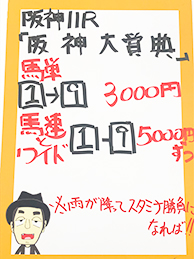 阪神11R
「阪神大賞典」
馬単
1→9 3000円
馬連
と
ワイド 1-9 5000円
ずつ
※雨が降ってスタミナ勝負に
なれば!!